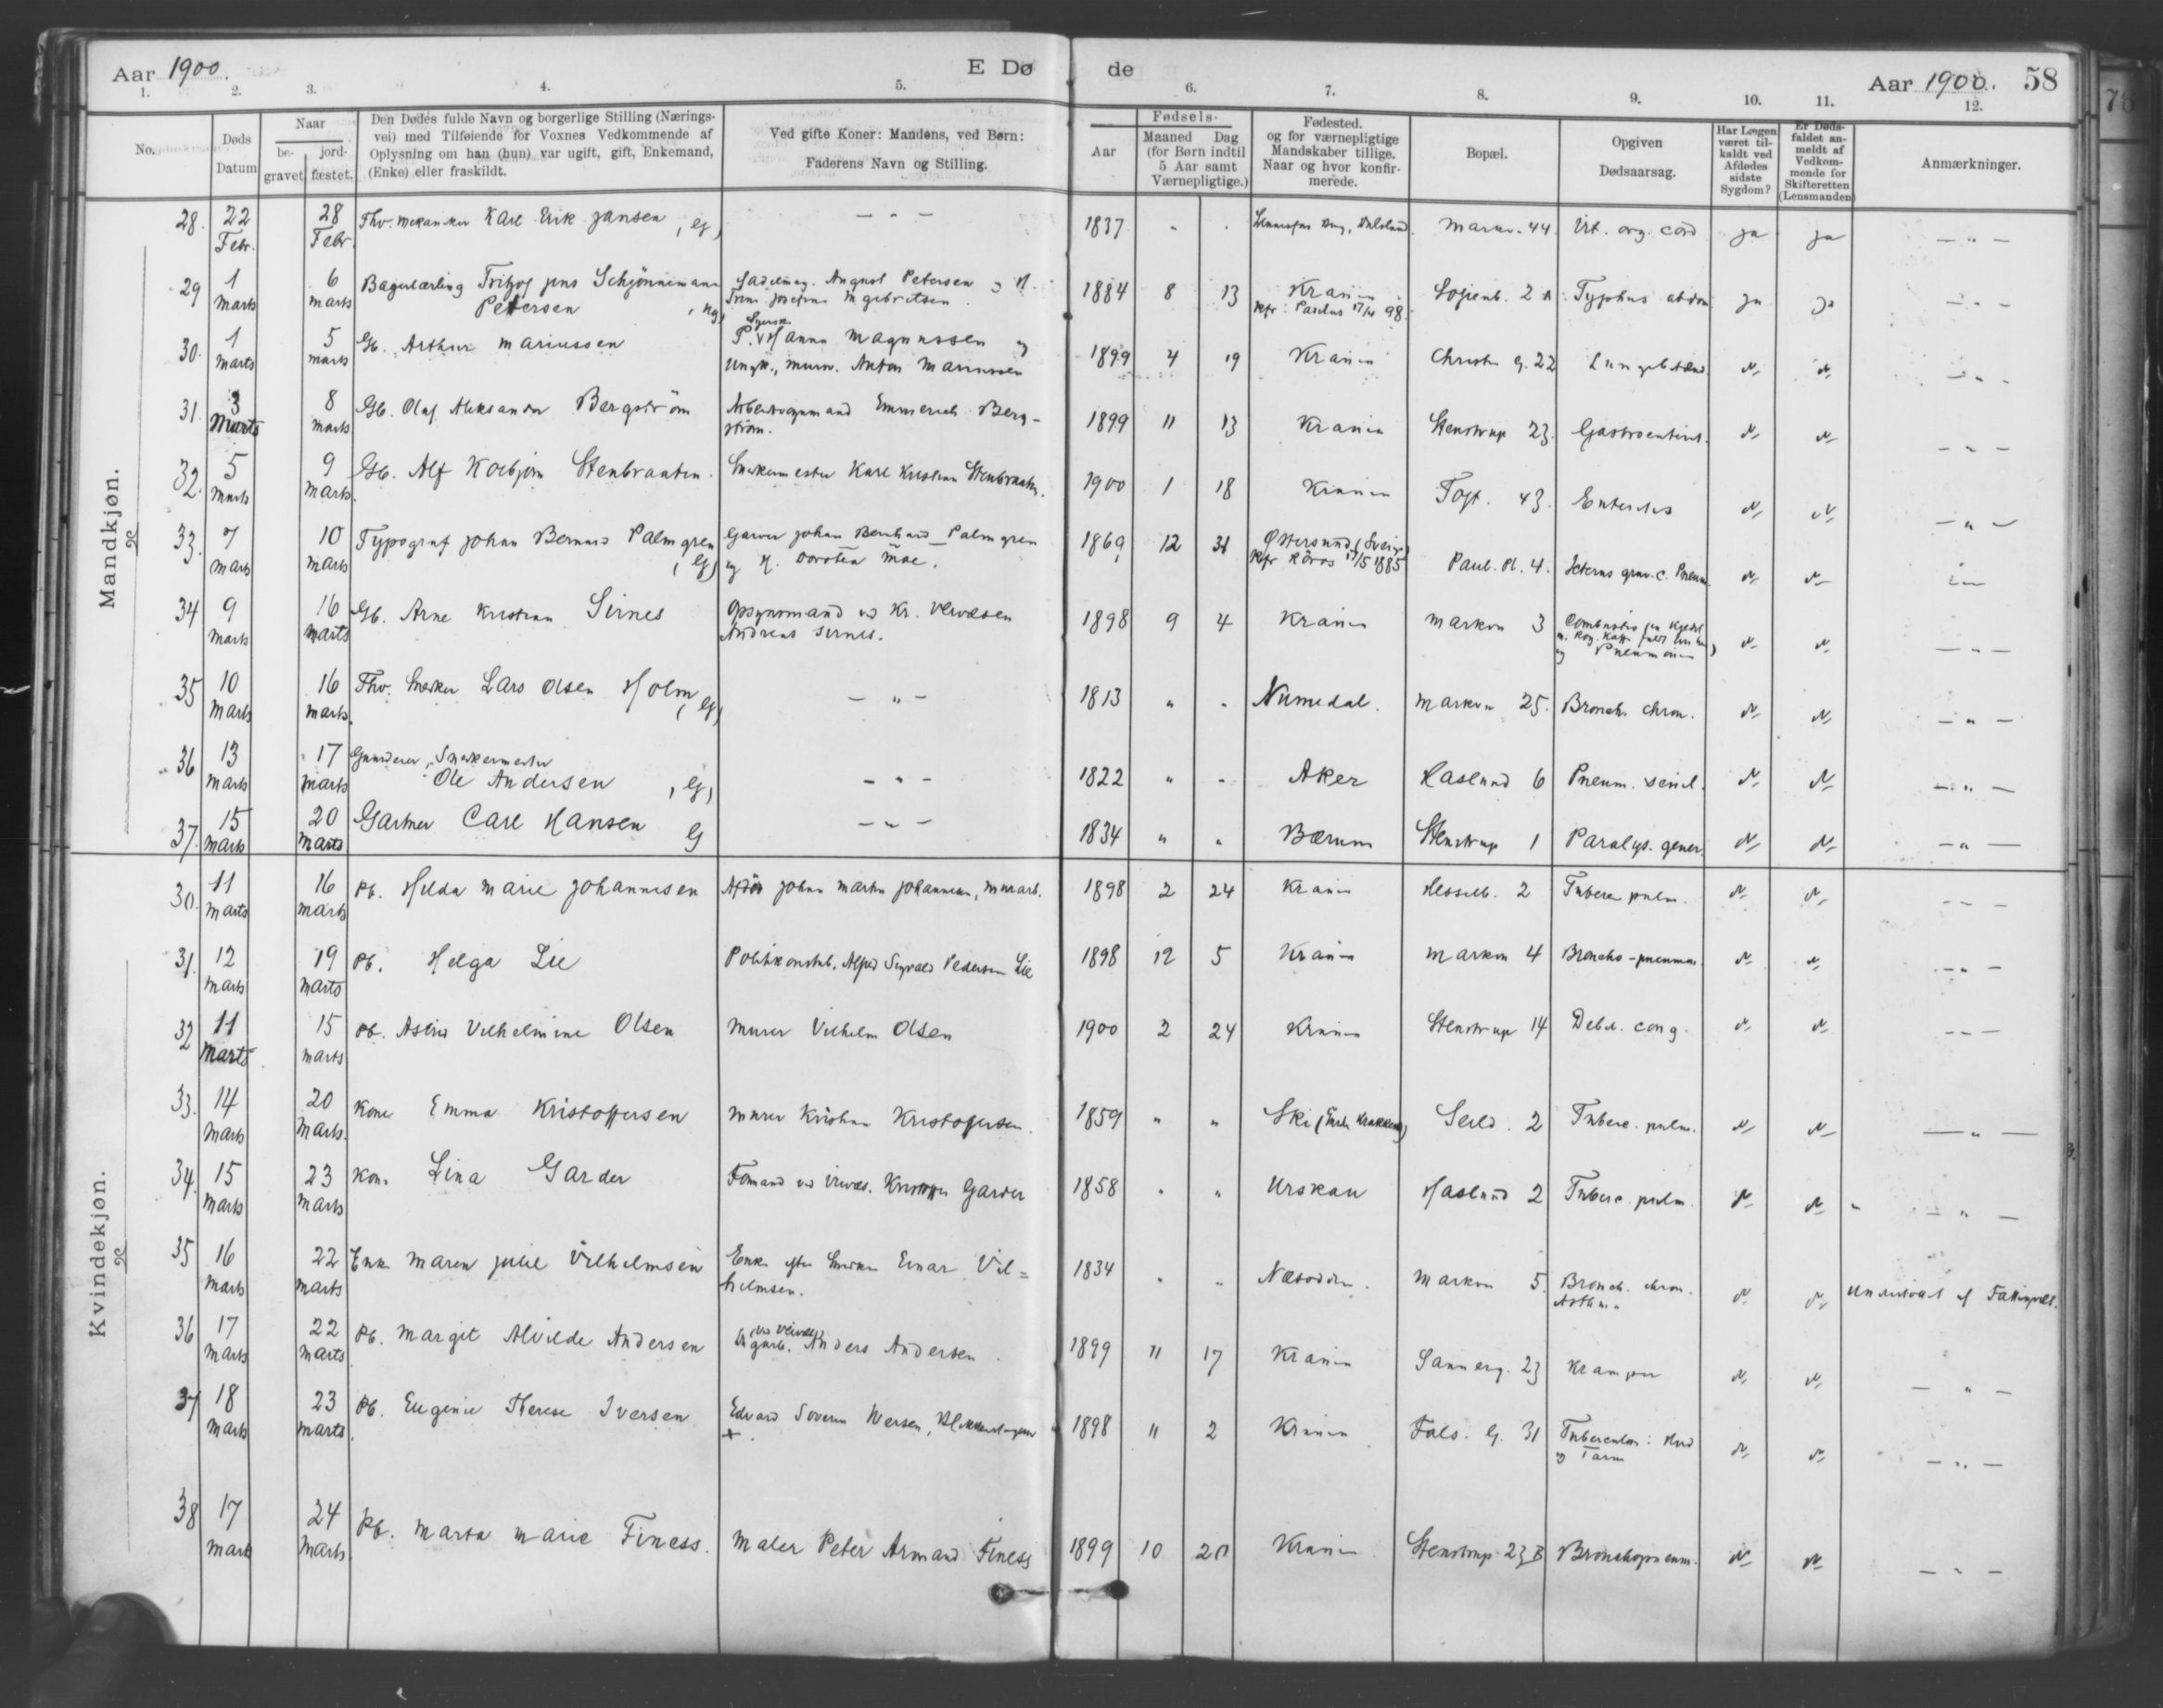 Aar 1900.
E Dø
de
Aar 1900.
58
1.
2.
3.
4.
5.
6.
7.
8.
9.
10.
11.
12.
No.
Døds Datum
Naar
be- gravet
jord- fæstet.
Den Dødes fulde Navn og borgerlige Stilling (Nærings-
vei) med Tilføiende for Voxnes Vedkommende af
Oplysning om han (hun) var ugift, gift, Enkemand,
(Enke) eller fraskildt.
Ved gifte Koner: Mandens, ved Børn:
Faderens Navn og Stilling.
Fødsels-
Aar
Maaned Dag
(for Børn indtil
5 Aar samt
Værnepligtige.)
Fødested.
og for værnepligtige
Mandskaber tillige.
Naar og hvor konfir-
merede.
Bopæl.
Opgiven
Dødsaarsag.
Har Lægen
været til-
kaldt ved
Afdødes
sidste
Sygdom?
Er Døds-
faldet an-
meldt af
Vedkom-
mende for
Skifteretten
(Lensmanden)
Anmærkninger.
Mandkjøn.
28. 22 Febr. 28 Febr. Fhv. mekaniker Karl Erik Jansen, G) — " — 1837 " " Markv. 44. Vit. org. cord ja ja — " —
29 1 Marts 6 Marts Bagerlærling Jens Schjönnemann
Petersen, ug) August Petersen og H. 1884 8 13 Krania Sofienb. 2 A. Typhus abdom ja ja — " —
Kfr: Paulus 98.
30. 1 Marts 5 Marts Gb. Arthur Mariussen P. Hanna Magnussen og
Ungk., murn. Anton Mariussen 1899 4 19 Krania Christ. g. 22 N N — " —
31. 3 Marts 8 Marts Gb. Olaf Aleksander Bergström Emmerich Berg-
ström. 1899 11 13 Krania Stenstrup 23. Gastroenterit. N N — " —
32. 5 Marts 9 Marts. Gb. Alf Korbjørn Stenbraaten. Snekermester Karl Kristian Stenbraaten. 1900 1 18 Krania Toft. 43. Enteritis N N — " —
33. 7 Marts 10 Marts Typograf Johan Bernard Palmgren
(G) Garver Johan Bernhard Palmgren
og H. Dorotea Moe. 1869 12 31 Østersund (Sverige)
Kfr Röros 17/5 1885 Paul. Pl. 4. Icterus grav. c. Pneum. N N — " —
34 9 Marts 16 Marts Gb. Arne Kristian Sirnes Opsynsmand ved Kr. Veivæsen
Andreas Sirnes. 1898 9 4 Krania Markvn 3 Combustio
og Pneumonia N N — " —
35 10 Marts 16 Marts. Fhv. Snekker Lars Olsen Holm, G) — " — 1813 " " Numedal. Markvn 25. Bronch. chron. N N — " —
36 13 Marts 17 Marts Gaardeier, Snekermester
Ole Andersen, G) — " — 1822 " " Aker Haslund 6 Pneum. senil. N N — " —
37. 15 Marts 20 Marts Gartner Carl Hansen G — " — 1834 " " Bærum Stenstrup 1 Paralys. gener. N N — " —
Kvindekjøn.
30. 11 Marts 16 Marts Pb. Hilda Marie Johannesen Afdøde Johan Martin Johannesen, murarb. 1898 2 24 Krania Hesselb. 2 Tuberc. pulm. N N — " —
31. 12 Marts 19 Marts Pb. Helga Lie Politikonstab. Alfred Sigvald Pedersen Lie 1898 12 5 Krania Markvn 4 Broncho-pneumon. N N — " —
32 11 Marts 15 Marts Pb. Astrid Vilhelmine Olsen Murer Vilhelm Olsen 1900 2 24 Krania Stenstrup 14 Debil. cong. N N — " —
33. 14 Marts 20 Marts. Kone Emma Kristoffersen Murer Kristian Kristofersen. 1859 " " Ski (Krakkerud) Seild. 2 Tuberc. pulm. N N — " —
34. 15 Marts 23 Marts Kone Lina Garder Formand ved Veivæs. Kristoffer Garder 1858 " " Urskau Haslund 2 Tuberc. pulm. N N — " —
35 16 Marts 22 Marts Enke Maren Julie Vilhelmsen Enke efter Snekker Einar Vil=
helmsen. 1834 " " Næsodden. Markvn 5. Bronch. chron.
Asthma N N Understöttet af Fattigvæs.
36 17 Marts 22 Marts Pb. Margit Alvilde Andersen (ved Veivæs.)
Anders Andersen. 1899 11 17 Krania Sannerg. 23 Kramper N N — " —
37 18 Marts 23 Marts Pb. Eugenie Therese Iversen Edvard Soverin Iversen, Blikkenslager
+. 1898 11 2 Krania Fals. G. 31 Tuberculos: Hud
og Tarm N N — " —
38 17 Marts 24 Marts. Pb. Marta Marie Finess. Maler Peter Armand Finess 1899 10 20 Krania Stenstrup 23 B Bronchopneum. N N — " —